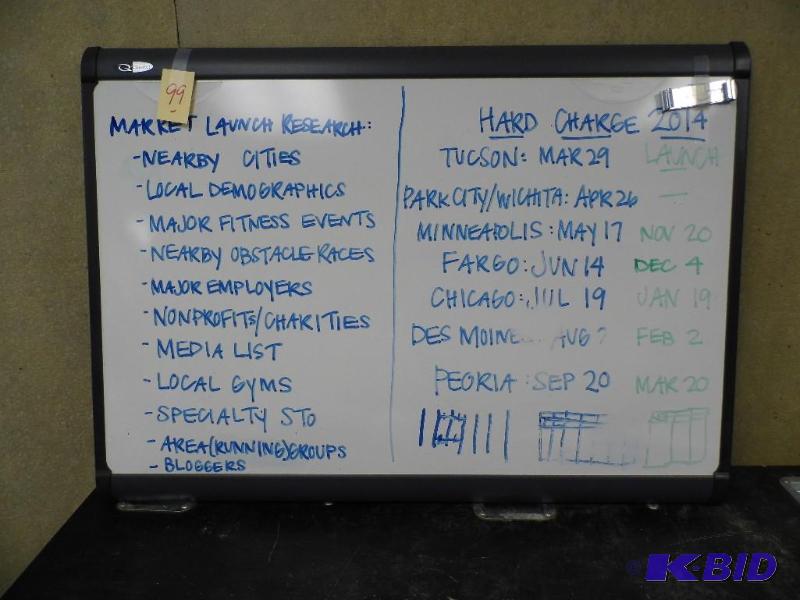 99
MARKET LAUNCH RESEARCH:
- NEARBY CITIES
- LOCAL DEMOGRAPHICS
- MAJOR FITNESS EVENTS
- NEARBY OBSTACLE RACES
- MAJOR EMPLOYERS
- NONPROFITS/CHARITIES
- MEDIA LIST
- LOCAL GYMS
- SPECIALTY STO
- AREA(RUNNING)GROUPS
- BLOGGERS
HARD CHARGE 2014
TUCSON: MAR 29 LAUNCH
PARK CITY/WICHITA: APR 26 —
MINNEAPOLIS: MAY 17 NOV 20
FARGO: JUN 14 DEC 4
CHICAGO: JUL 19 JAN 19
DES MOINE AUG FEB 2
PEORIA: SEP 20 MAR 20
K-BID